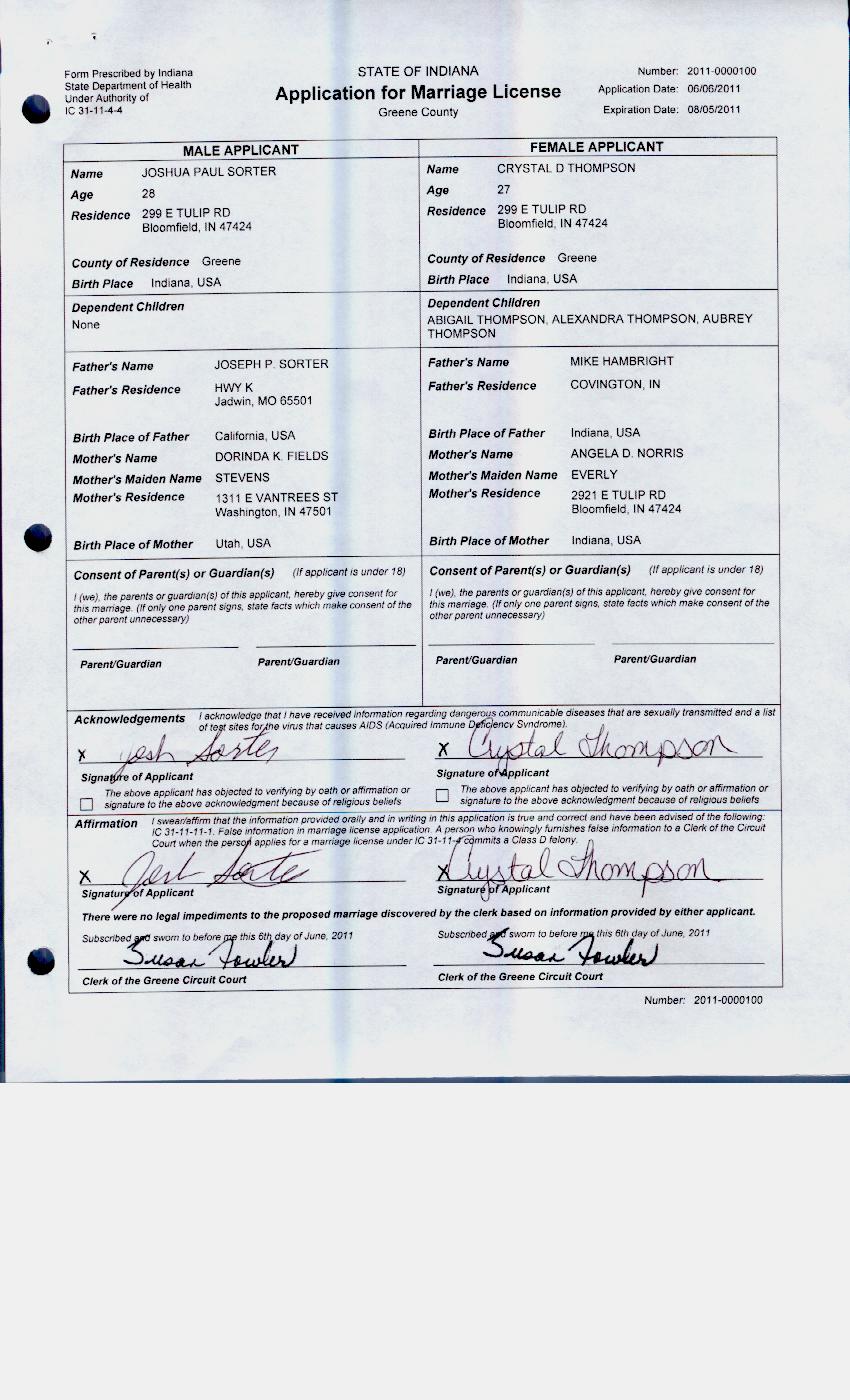 Form Prescribed by Indiana
State Department of Health
Under Authority of
IC 31-11-4-4
STATE OF INDIANA
Application for Marriage License
Greene County
Number: 2011-0000100
Application Date: 06/06/2011
Expiration Date: 08/05/2011
MALE APPLICANT
Name JOSHUA PAUL SORTER
Age 28
Residence 299 E TULIP RD
Bloomfield, IN 47424
County of Residence Greene
Birth Place Indiana, USA
Dependent Children
None
Father's Name JOSEPH P. SORTER
Father's Residence HWY K
Jadwin, MO 65501
Birth Place of Father California, USA
Mother's Name DORINDA K. FIELDS
Mother's Maiden Name STEVENS
Mother's Residence 1311 E VANTREES ST
Washington, IN 47501
Birth Place of Mother Utah, USA
Consent of Parent(s) or Guardian(s) (If applicant is under 18)
I (we), the parents or guardian(s) of this applicant, hereby give consent for
this marriage. (If only one parent signs, state facts which make consent of the
other parent unnecessary)
Parent/Guardian Parent/Guardian
FEMALE APPLICANT
Name CRYSTAL D THOMPSON
Age 27
Residence 299 E TULIP RD
Bloomfield, IN 47424
County of Residence Greene
Birth Place Indiana, USA
Dependent Children
ABIGAIL THOMPSON, ALEXANDRA THOMPSON, AUBREY
THOMPSON
Father's Name MIKE HAMBRIGHT
Father's Residence COVINGTON, IN
Birth Place of Father Indiana, USA
Mother's Name ANGELA D. NORRIS
Mother's Maiden Name EVERLY
Mother's Residence 2921 E TULIP RD
Bloomfield, IN 47424
Birth Place of Mother Indiana, USA
Consent of Parent(s) or Guardian(s) (If applicant is under 18)
I (we), the parents or guardian(s) of this applicant, hereby give consent for
this marriage. (If only one parent signs, state facts which make consent of the
other parent unnecessary)
Parent/Guardian Parent/Guardian
Acknowledgements I acknowledge that I have received information regarding dangerous communicable diseases that are sexually transmitted and a list
of test sites for the virus that causes AIDS (Acquired Immune Deficiency Syndrome).
X Josh Sorter X Crystal Thompson
Signature of Applicant Signature of Applicant
The above applicant has objected to verifying by oath or affirmation or
signature to the above acknowledgment because of religious beliefs
The above applicant has objected to verifying by oath or affirmation or
signature to the above acknowledgment because of religious beliefs
Affirmation I swear/affirm that the information provided orally and in writing in this application is true and correct and have been advised of the following:
IC 31-11-11-1. False information in marriage license application. A person who knowingly furnishes false information to a Clerk of the Circuit
Court when the person applies for a marriage license under IC 31-11-4 commits a Class D felony.
X Josh Sorter X Crystal Thompson
Signature of Applicant Signature of Applicant
There were no legal impediments to the proposed marriage discovered by the clerk based on information provided by either applicant.
Subscribed and sworn to before me this 6th day of June, 2011 Subscribed and sworn to before me this 6th day of June, 2011
Susan Fowler Susan Fowler
Clerk of the Greene Circuit Court Clerk of the Greene Circuit Court
Number: 2011-0000100